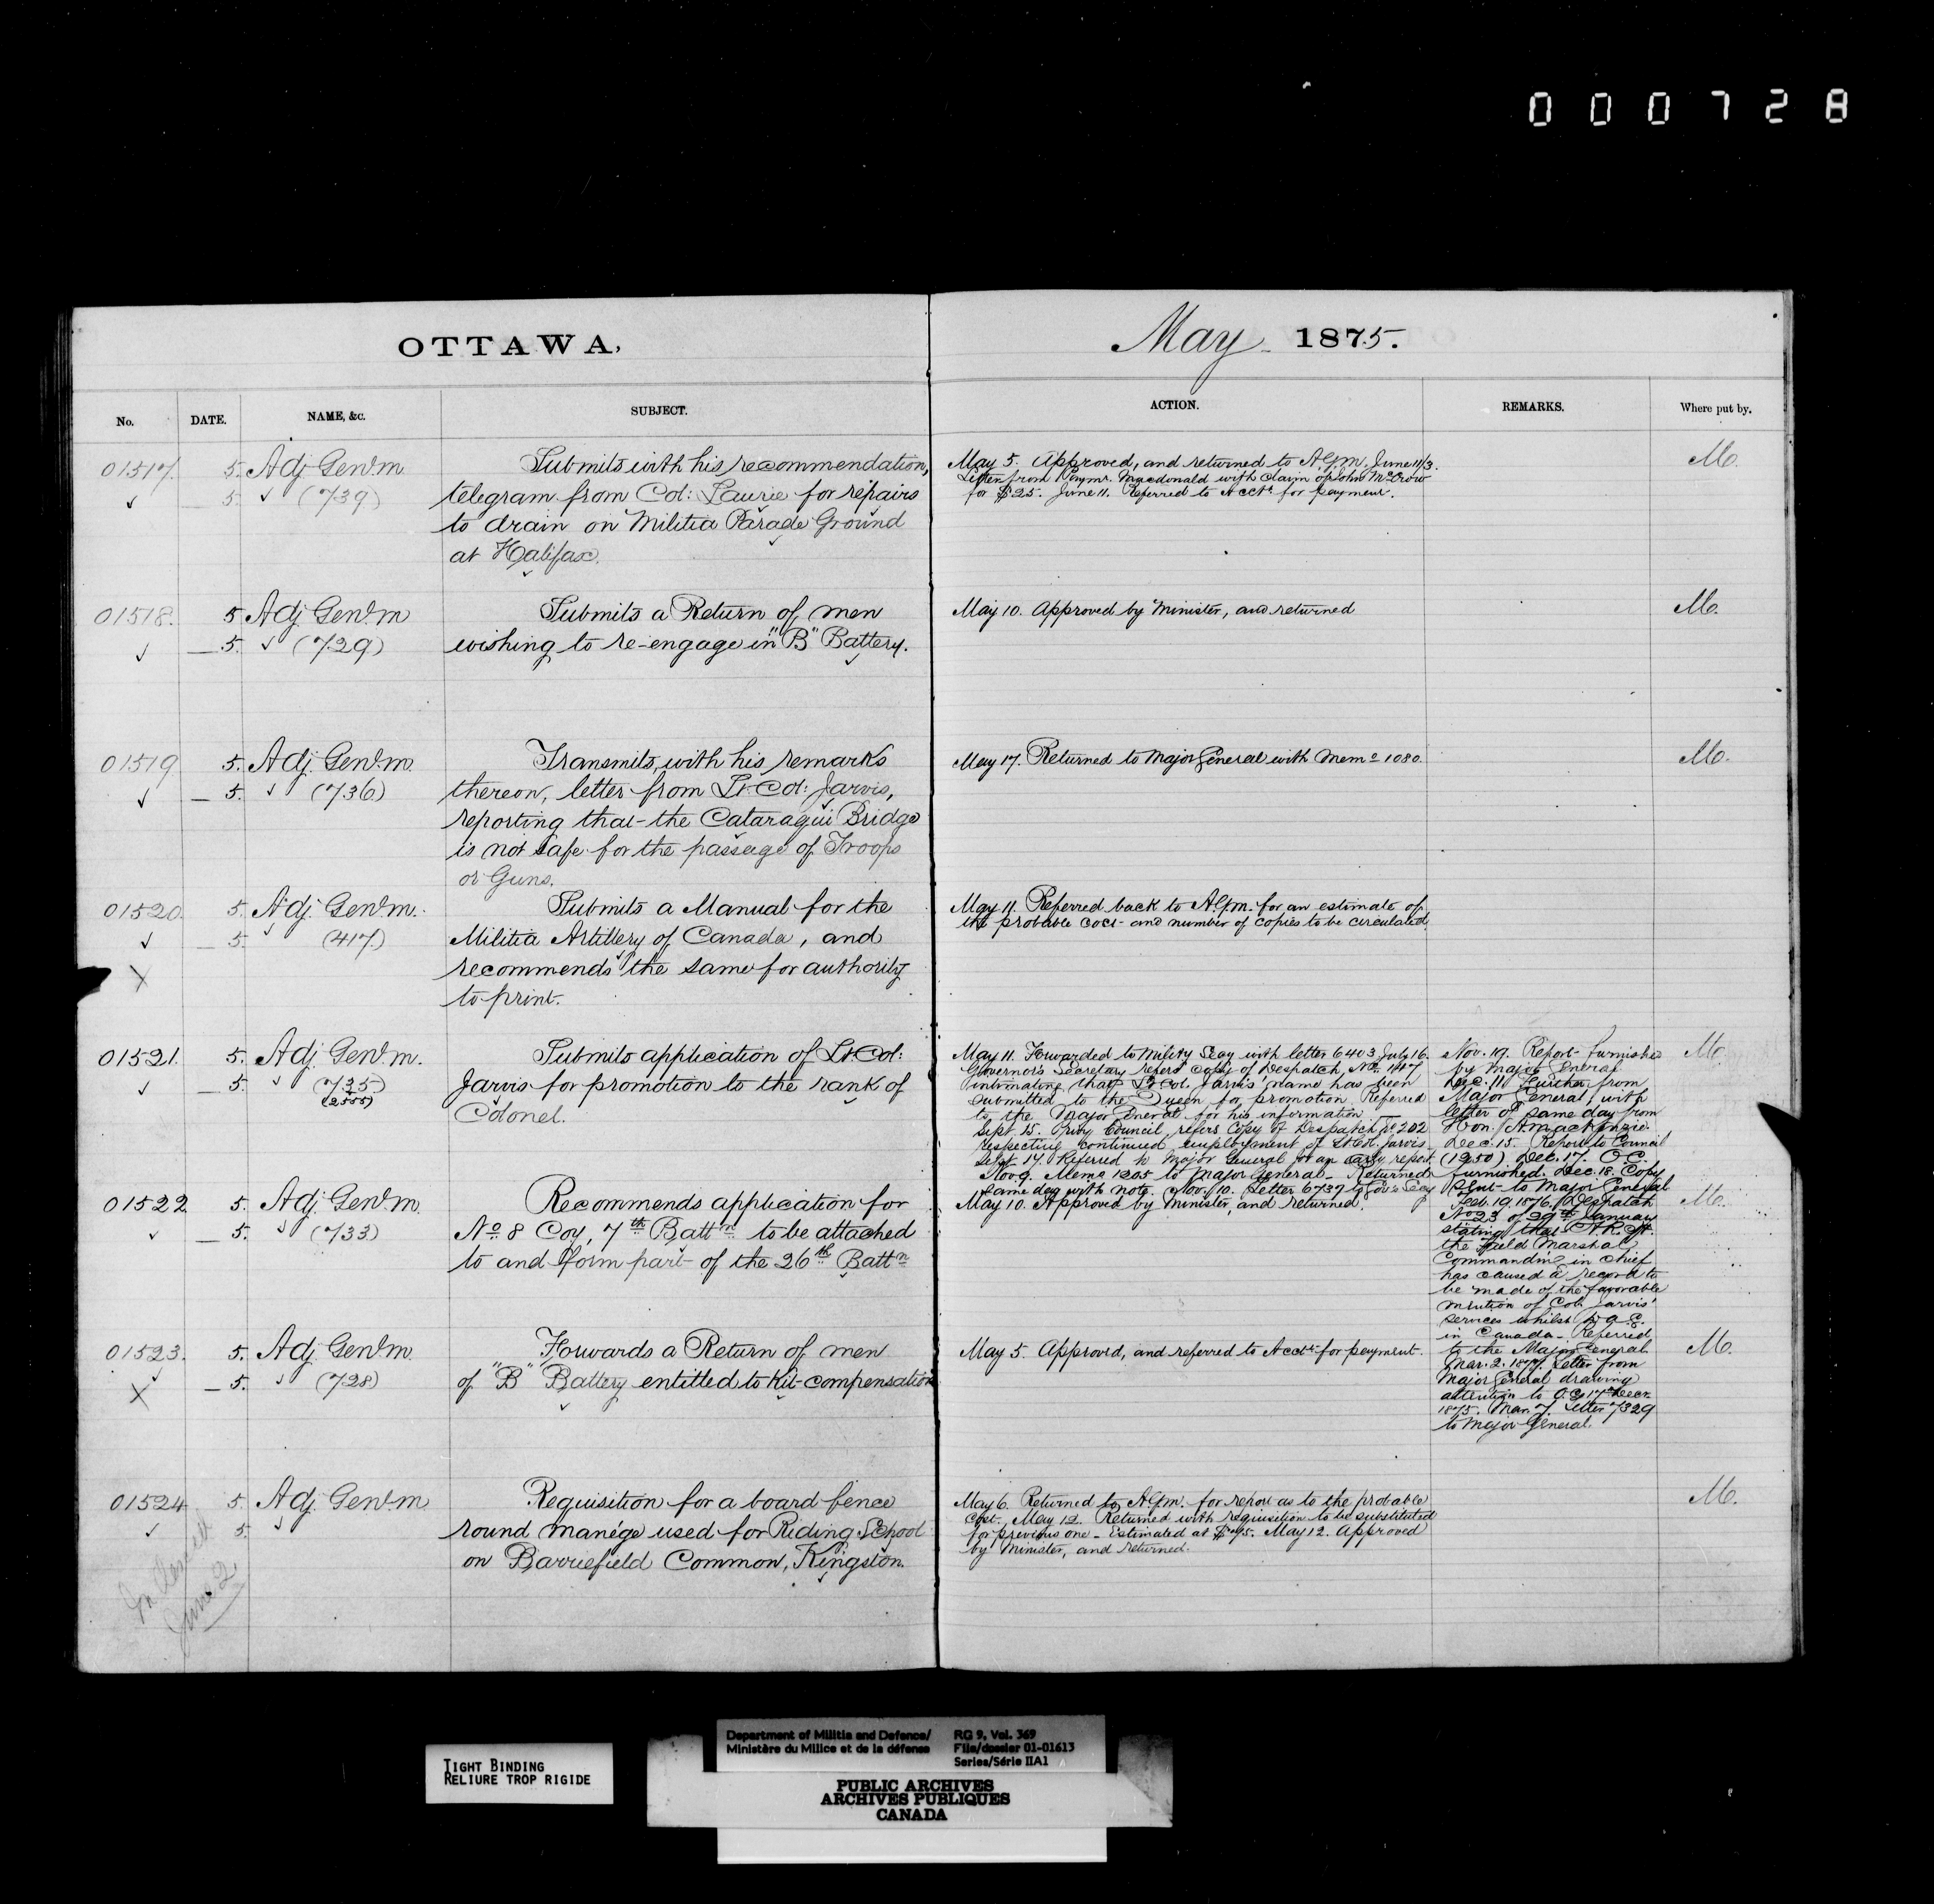 000728
OTTAWA,
May 1875.
No.
DATE.
NAME, &c.
SUBJECT.
ACTION.
REMARKS.
Where put by.
01517. 5. Adj Genl. m.
5. ✓ (739)
Submits with his recommendation,
telegram from Col: Laurie for repairs
to drain on Militia Parade Ground
at Halifax.
May 5. Approved, and returned to A.G.M. June 11/3.
Letter from Paymr. Macdonald with claim of John McCrow
for $25. June 11. Referred to Acctt. for payment.
M.
01518. 5 Adj Genl. m
— 5. ✓ (729)
Submits a Return of men
wishing to re-engage in "B" Battery.
May 10. Approved by Minister, and returned
M.
01519 5. Adj. Genl. m.
— 5. ✓ (736)
Transmits, with his remarks
thereon, letter from Lt. Col: Jarvis,
reporting that the Cataraqui Bridge
is not safe for the passage of Troops
or Guns.
May 17. Returned to Major General with Memo 1080.
M.
01520. 5. Adj. Genl. m.
— 5. ✓ (417)
X
Submits a Manual for the
Militia Artillery of Canada, and
recommends the same for authority
to print.
May 11. Referred back to A.G.M. for an estimate of
the probable cost and number of copies to be circulated.
01521. 5. Adj. Genl. m.
— 5. ✓ (735)
(2555)
Submits application of Lt. Col:
Jarvis for promotion to the rank of
Colonel.
May 11. Forwarded to Mility Secy with letter 6403 July 16.
Governor's Secretary refers copy of Despatch No. 147
intimating that Lt. Col. Jarvis' name has been
submitted to the Queen for promotion Referred
to the Major General for his information —
Sept 15. Privy Council refers Copy of Despatch No 202
respecting continued employment of Lt Col. Jarvis
Sept 17. Referred to Major General for an early report
Nov. 9. Memo 1205 to Major General — Returned
same day with note. Nov. 10. Letter 6737 to Gov's Secy
Nov. 19. Report furnished
by Major General
Dec. 11 Further from
Major General, with
letter of same day from
Hon. A. Mackenzie.
Dec. 15. Report to Council
(1250) Dec. 17. O C.
furnished. Dec. 18. Copy
sent to Major General
Feb. 19. 1876. Despatch
No 23 of 29th January
stating that H. R. H.
the Field Marshal
Commandin in Chief
has caused a record to
be made of the favorable
mention of Col. Jarvis'
services whilst D. A. G.
in Canada — Referred
to the Major General
Mar. 2. 1877. Letter from
Major General drawing
attention to O.C. 17 Decr.
1875. Mar. 7. Letter 7329
to Major General.
M.
01522 5. Adj. Genl. m.
— 5. ✓ (733)
Recommends application for
No. 8 Coy, 7th Battn. to be attached
to and form part of the 26th Battn
May 10. Approved by Minister, and returned.
M.
01523. 5. Adj. Genl. m.
X — 5. ✓ (728)
Forwards a Return of men
of "B" Battery entitled to Kit compensation
May 5. Approved, and referred to Acctt. for payment.
M.
01524 5. Adj. Genl. m
5. ✓
June 2
Requisition for a board fence
round manége used for Riding School
on Barriefield Common, Kingston.
May 6. Returned to A.G.M. for report as to the probable
cost. May 12. Returned with requisition to be substituted
for previous one — Estimated at $75. May 12. Approved
by Minister, and returned.
M.
TIGHT BINDING
RELIURE TROP RIGIDE
Department of Militia and Defence/
Ministère du Milice et de la défense
RG 9, Vol. 369
File/dossier 01-01613
Series/Série IIA1
PUBLIC ARCHIVES
ARCHIVES PUBLIQUES
CANADA